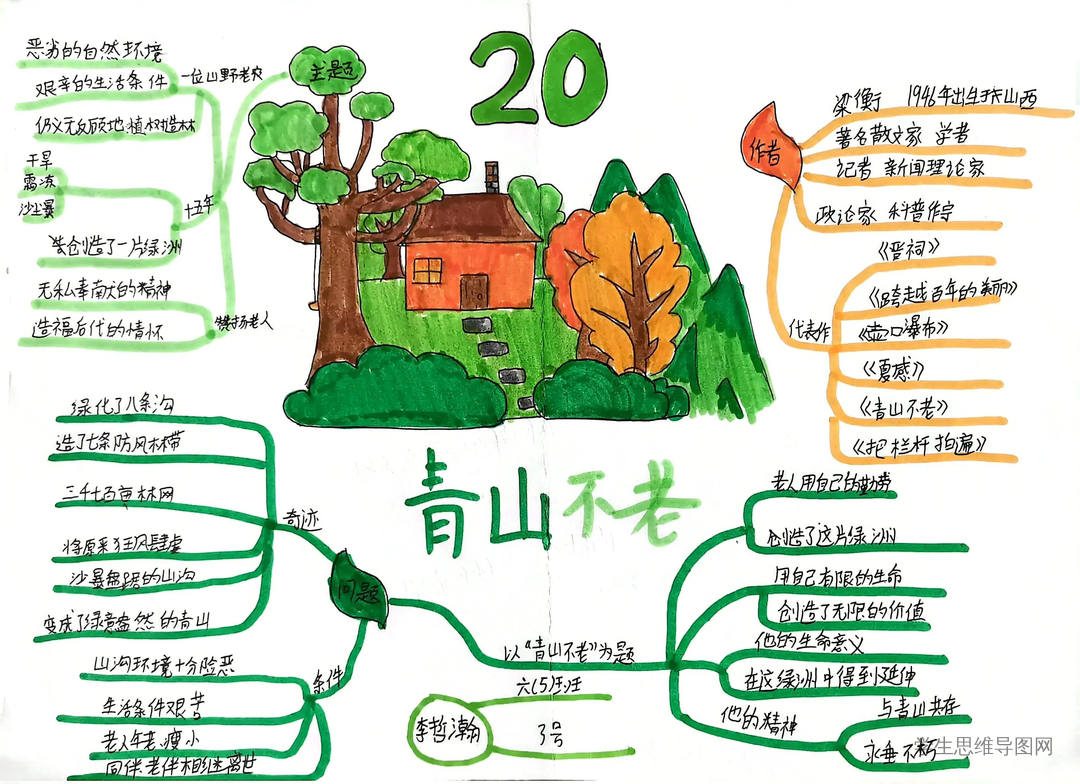 20
青山不老
主题
一位山野老农
恶劣的自然环境
艰辛的生活条件
仍义无反顾地植树造林
十五年
干旱
霜冻
沙尘暴
创造了一片绿洲
赞扬老人
无私奉献的精神
造福后代的情怀
作者
梁衡 1946年出生于山西
著名散文家 学者
记者 新闻理论家
政论家 科普作家
代表作
《晋祠》
《跨越百年的美丽》
《壶口瀑布》
《夏感》
《青山不老》
《把栏杆拍遍》
问题
奇迹
绿化了八条沟
造了七条防风林带
三千七百亩林网
将原来狂风肆虐
沙暴盘踞的山沟
变成了绿意盎然的青山
条件
山沟环境十分险恶
生活条件艰苦
老人年老瘦小
同伴老伴相继离世
以“青山不老”为题
老人用自己的勤劳
创造了这片绿洲
用自己有限的生命
创造了无限的价值
他的生命意义
在这绿洲中得到延伸
他的精神
与青山共存
永垂不朽
六(5)班
李哲瀚
3号
学生思维导图网